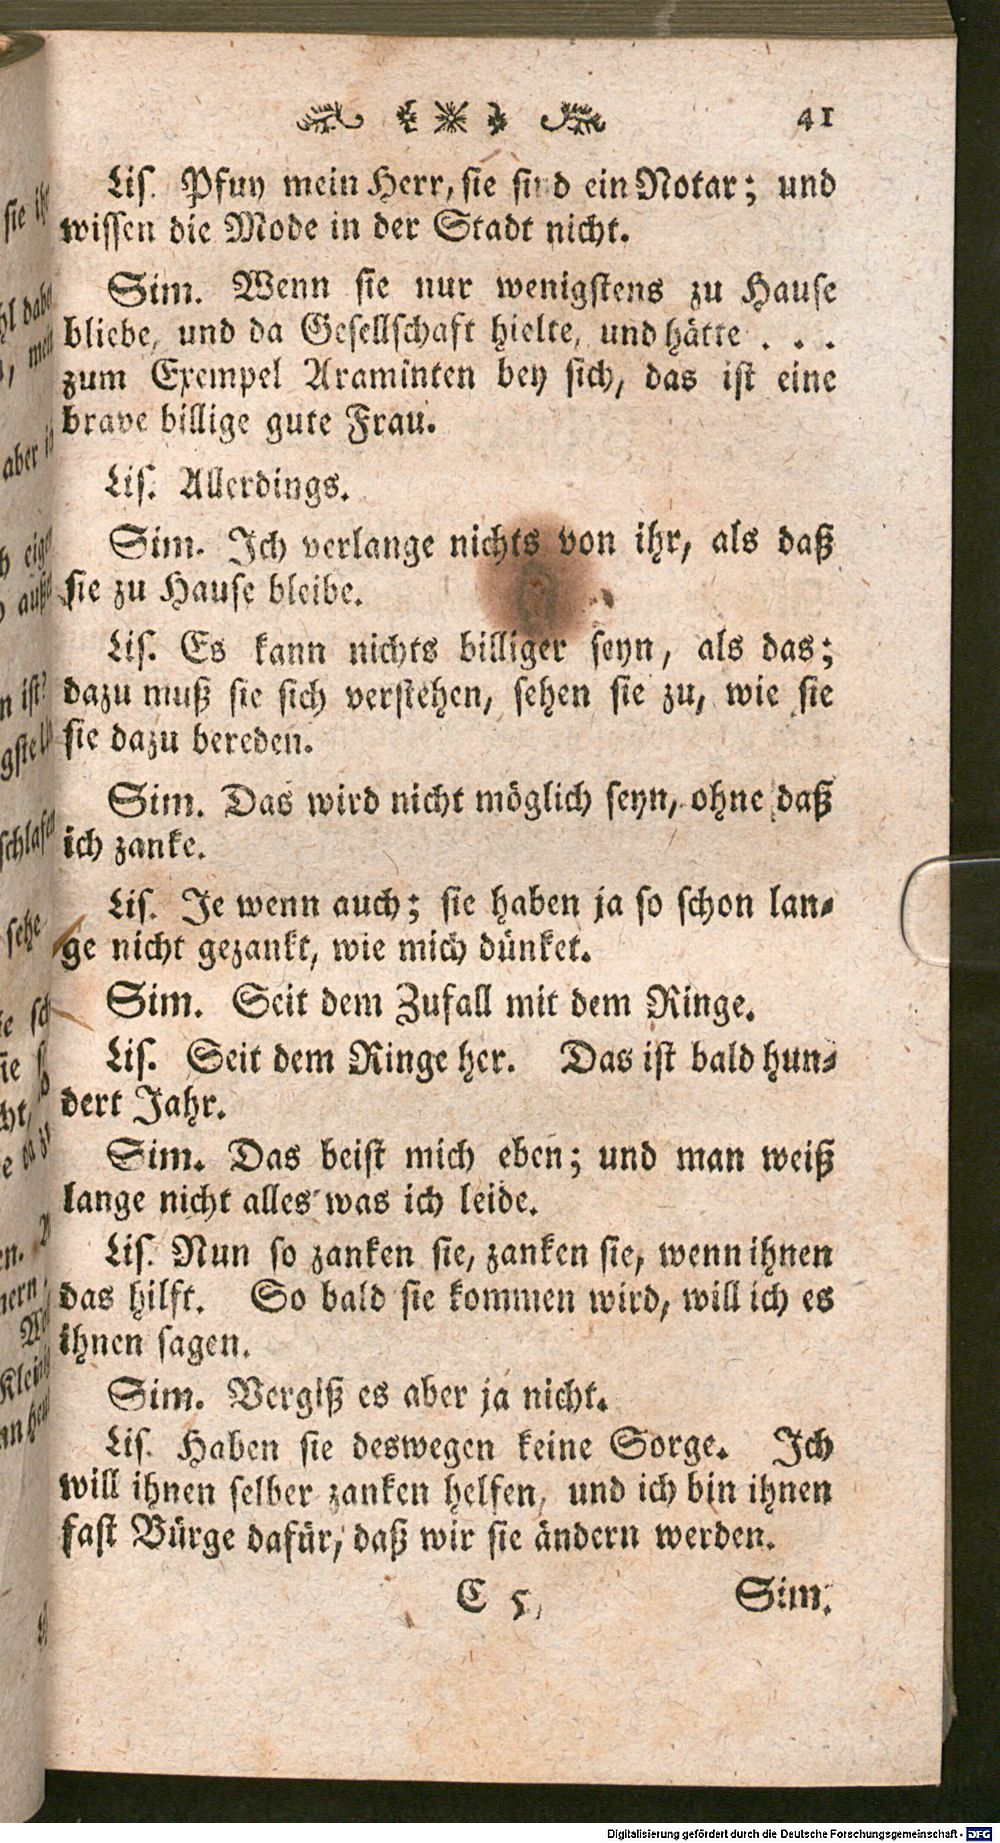 41
Lis. Pfuy mein Herr, sie sind ein Notar; und
wissen die Mode in der Stadt nicht.
Sim. Wenn sie nur wenigstens zu Hause
bliebe, und da Gesellschaft hielte, und hätte . . .
zum Exempel Araminten bey sich, das ist eine
brave billige gute Frau.
Lis. Allerdings.
Sim. Ich verlange nichts von ihr, als daß
sie zu Hause bleibe.
Lis. Es kann nichts billiger seyn, als das;
dazu muß sie sich verstehen, sehen sie zu, wie sie
sie dazu bereden.
Sim. Das wird nicht möglich seyn, ohne daß
ich zanke.
Lis. Je wenn auch; sie haben ja so schon lan-
ge nicht gezankt, wie mich dünket.
Sim. Seit dem Zufall mit dem Ringe.
Lis. Seit dem Ringe her. Das ist bald hun-
dert Jahr.
Sim. Das beist mich eben; und man weiß
lange nicht alles was ich leide.
Lis. Nun so zanken sie, zanken sie, wenn ihnen
das hilft. So bald sie kommen wird, will ich es
ihnen sagen.
Sim. Vergiß es aber ja nicht.
Lis. Haben sie deswegen keine Sorge. Ich
will ihnen selber zanken helfen, und ich bin ihnen
fast Bürge dafür, daß wir sie ändern werden.
C 5
Sim.
Digitalisierung gefördert durch die Deutsche Forschungsgemeinschaft - DFG